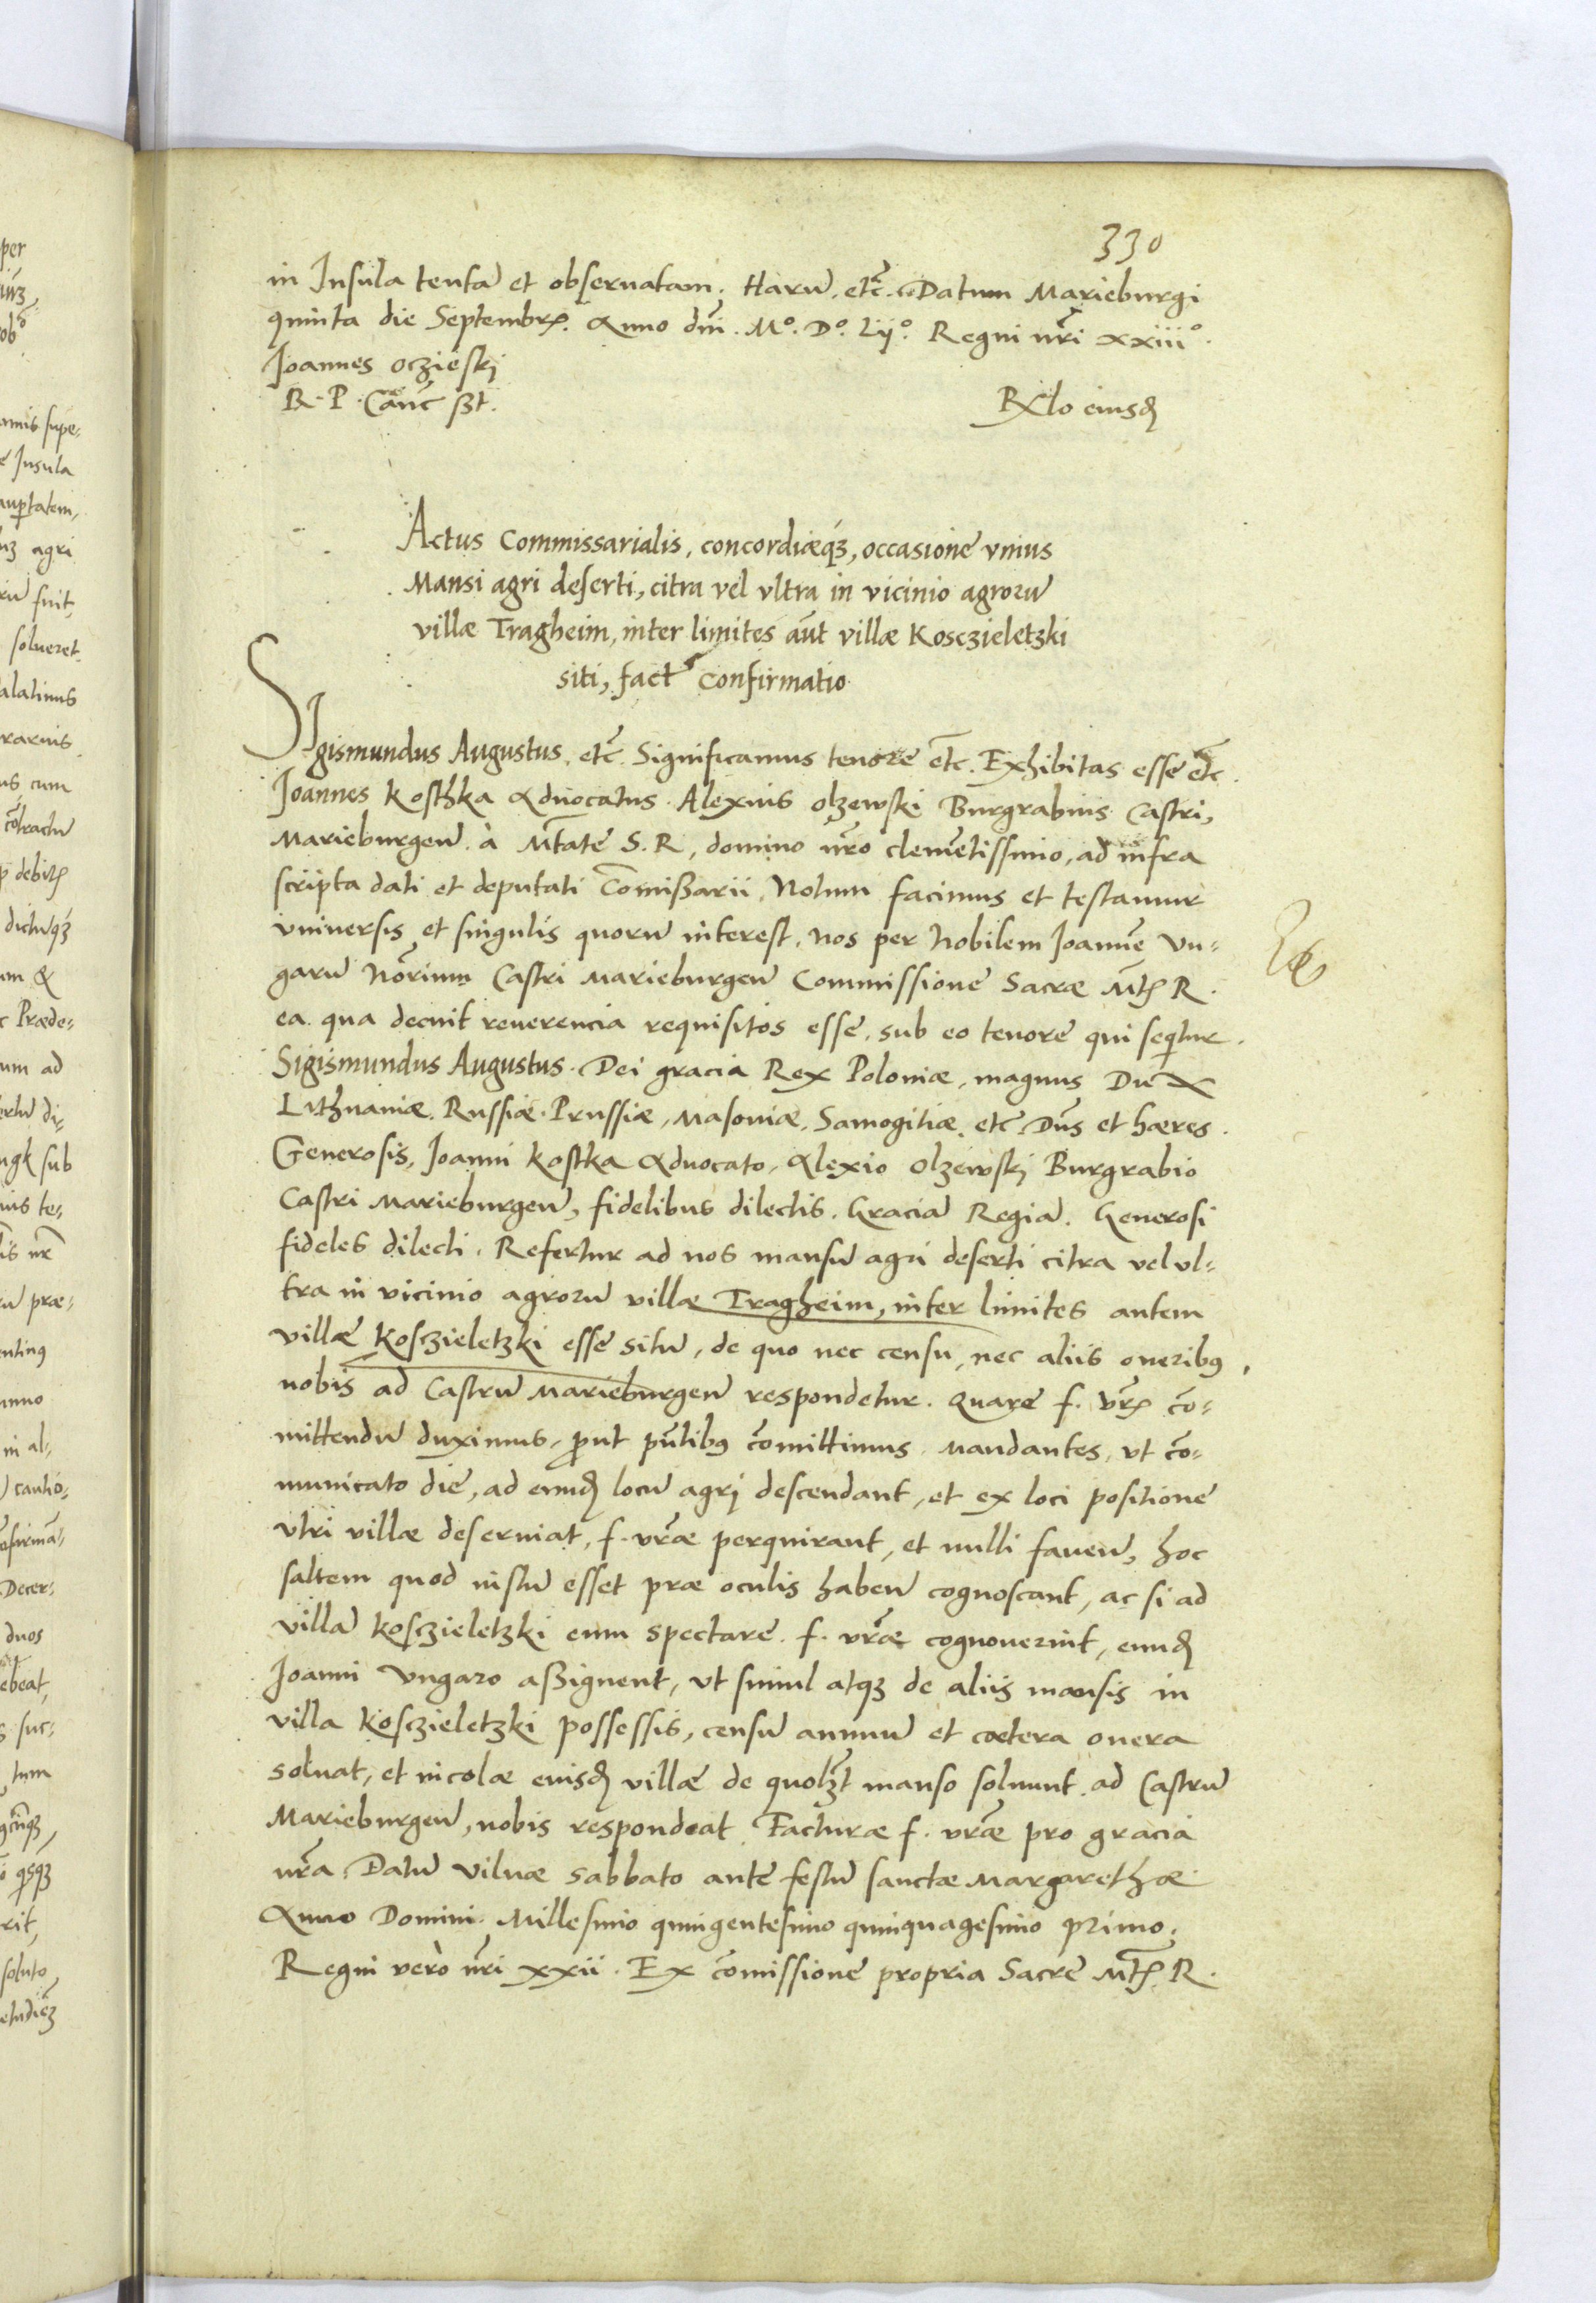 330
in Insula tentā et obseruatam. Harū. etc̄. Datum Marieburgi
quinta die Septembr̄. Anno dn̄i. M°. D°. Lij°. Regni nr̄i xxiii°.
Joannes oczieskj
R. P. Canc̄ ßt.
Rlo eiusd
Actus Commissarialis, concordiæq́ꝫ, occasione vnius
Mansi agri deserti, citra vel vltra in vicinio agrorū
villæ Tragheim, inter limites aūt villæ Kosczieletzki
siti, fact confirmatio
SIgismundus Augustus. etc̄. Significamus tenore etc̄. Exhibitas esse etc̄.
Joannes Kosthka Aduocatus. Alexius olzewski Burgrabius Castri,
Marieburgeñ. à Mt̄ate S. R, domino nr̄o clemētissimo, ad infra
scripta dati et deputati Com̄ißarii, Notum facimus et testamur
vniuersis et singulis quorū interest, nos per Nobilem Joannē Vn-
garū Nōrium Castri Marieburgeñ Commissione Sacræ Mt̄ꝭ R.
ea. qua decuit reuerencia requisitos esse. sub eo tenore qui seqt̄ur.
Sigismundus Augustus. Dei gracia Rex Poloniæ, magnus Dux
Lithuaniæ. Russiæ. Prussiæ, Masoviæ, Samogitiæ. etc̄. Dn̄s et hæres.
Generosis, Joanni Kostka Aduocato, Alexio olzewskj Burgrabio
Castri Marieburgeñ, fidelibus dilectis. Graciā Regiā. Generosi
fideles dilecti. Refertur ad nos mansū agri deserti citra vel vl-
tra in vicinio agrorū villæ Tragheim, inter limites autem
villæ Kosczieletzki esse sitū, de quo nec censu, nec aliis oneribꝰ,
nobis ad Castrū Marieburgeñ respondetur. Quare f. vr̄ꝭ cō-
mittendū duximus, ꝓut pn̄tibꝰ cōmittimus. Mandantes, vt cō-
municato die, ad eund locū agrj descendant, et ex loci positione
vtri villæ deseruiat, f. vr̄æ perquirant, et nulli faueñ, hoc
saltem quod iustū esset præ oculis habeñ cognoscant, ac si ad
villā Kosczieletzki eum spectare. f. vr̄æ cognouerint, eund
Joanni Vngaro aßignent, vt simul atqꝫ de aliis mansis in
villa Kosczieletzki possessis, censū annuū et cætera onera
soluat, et incolæ eiusd villæ de quolꝫt manso soluunt. ad Castrū
Marieburgeñ, nobis respondeat. Facturæ f. vr̄æ pro gracia
nr̄a. Datū Vilnæ sabbato ante festū sanctæ Margarethæ.
Anno Domini. Millesimo quingentesimo quinquagesimo primo.
Regni vero nr̄i xxii. Ex cōmissione propria Sacre Mt̄ꝭ R.